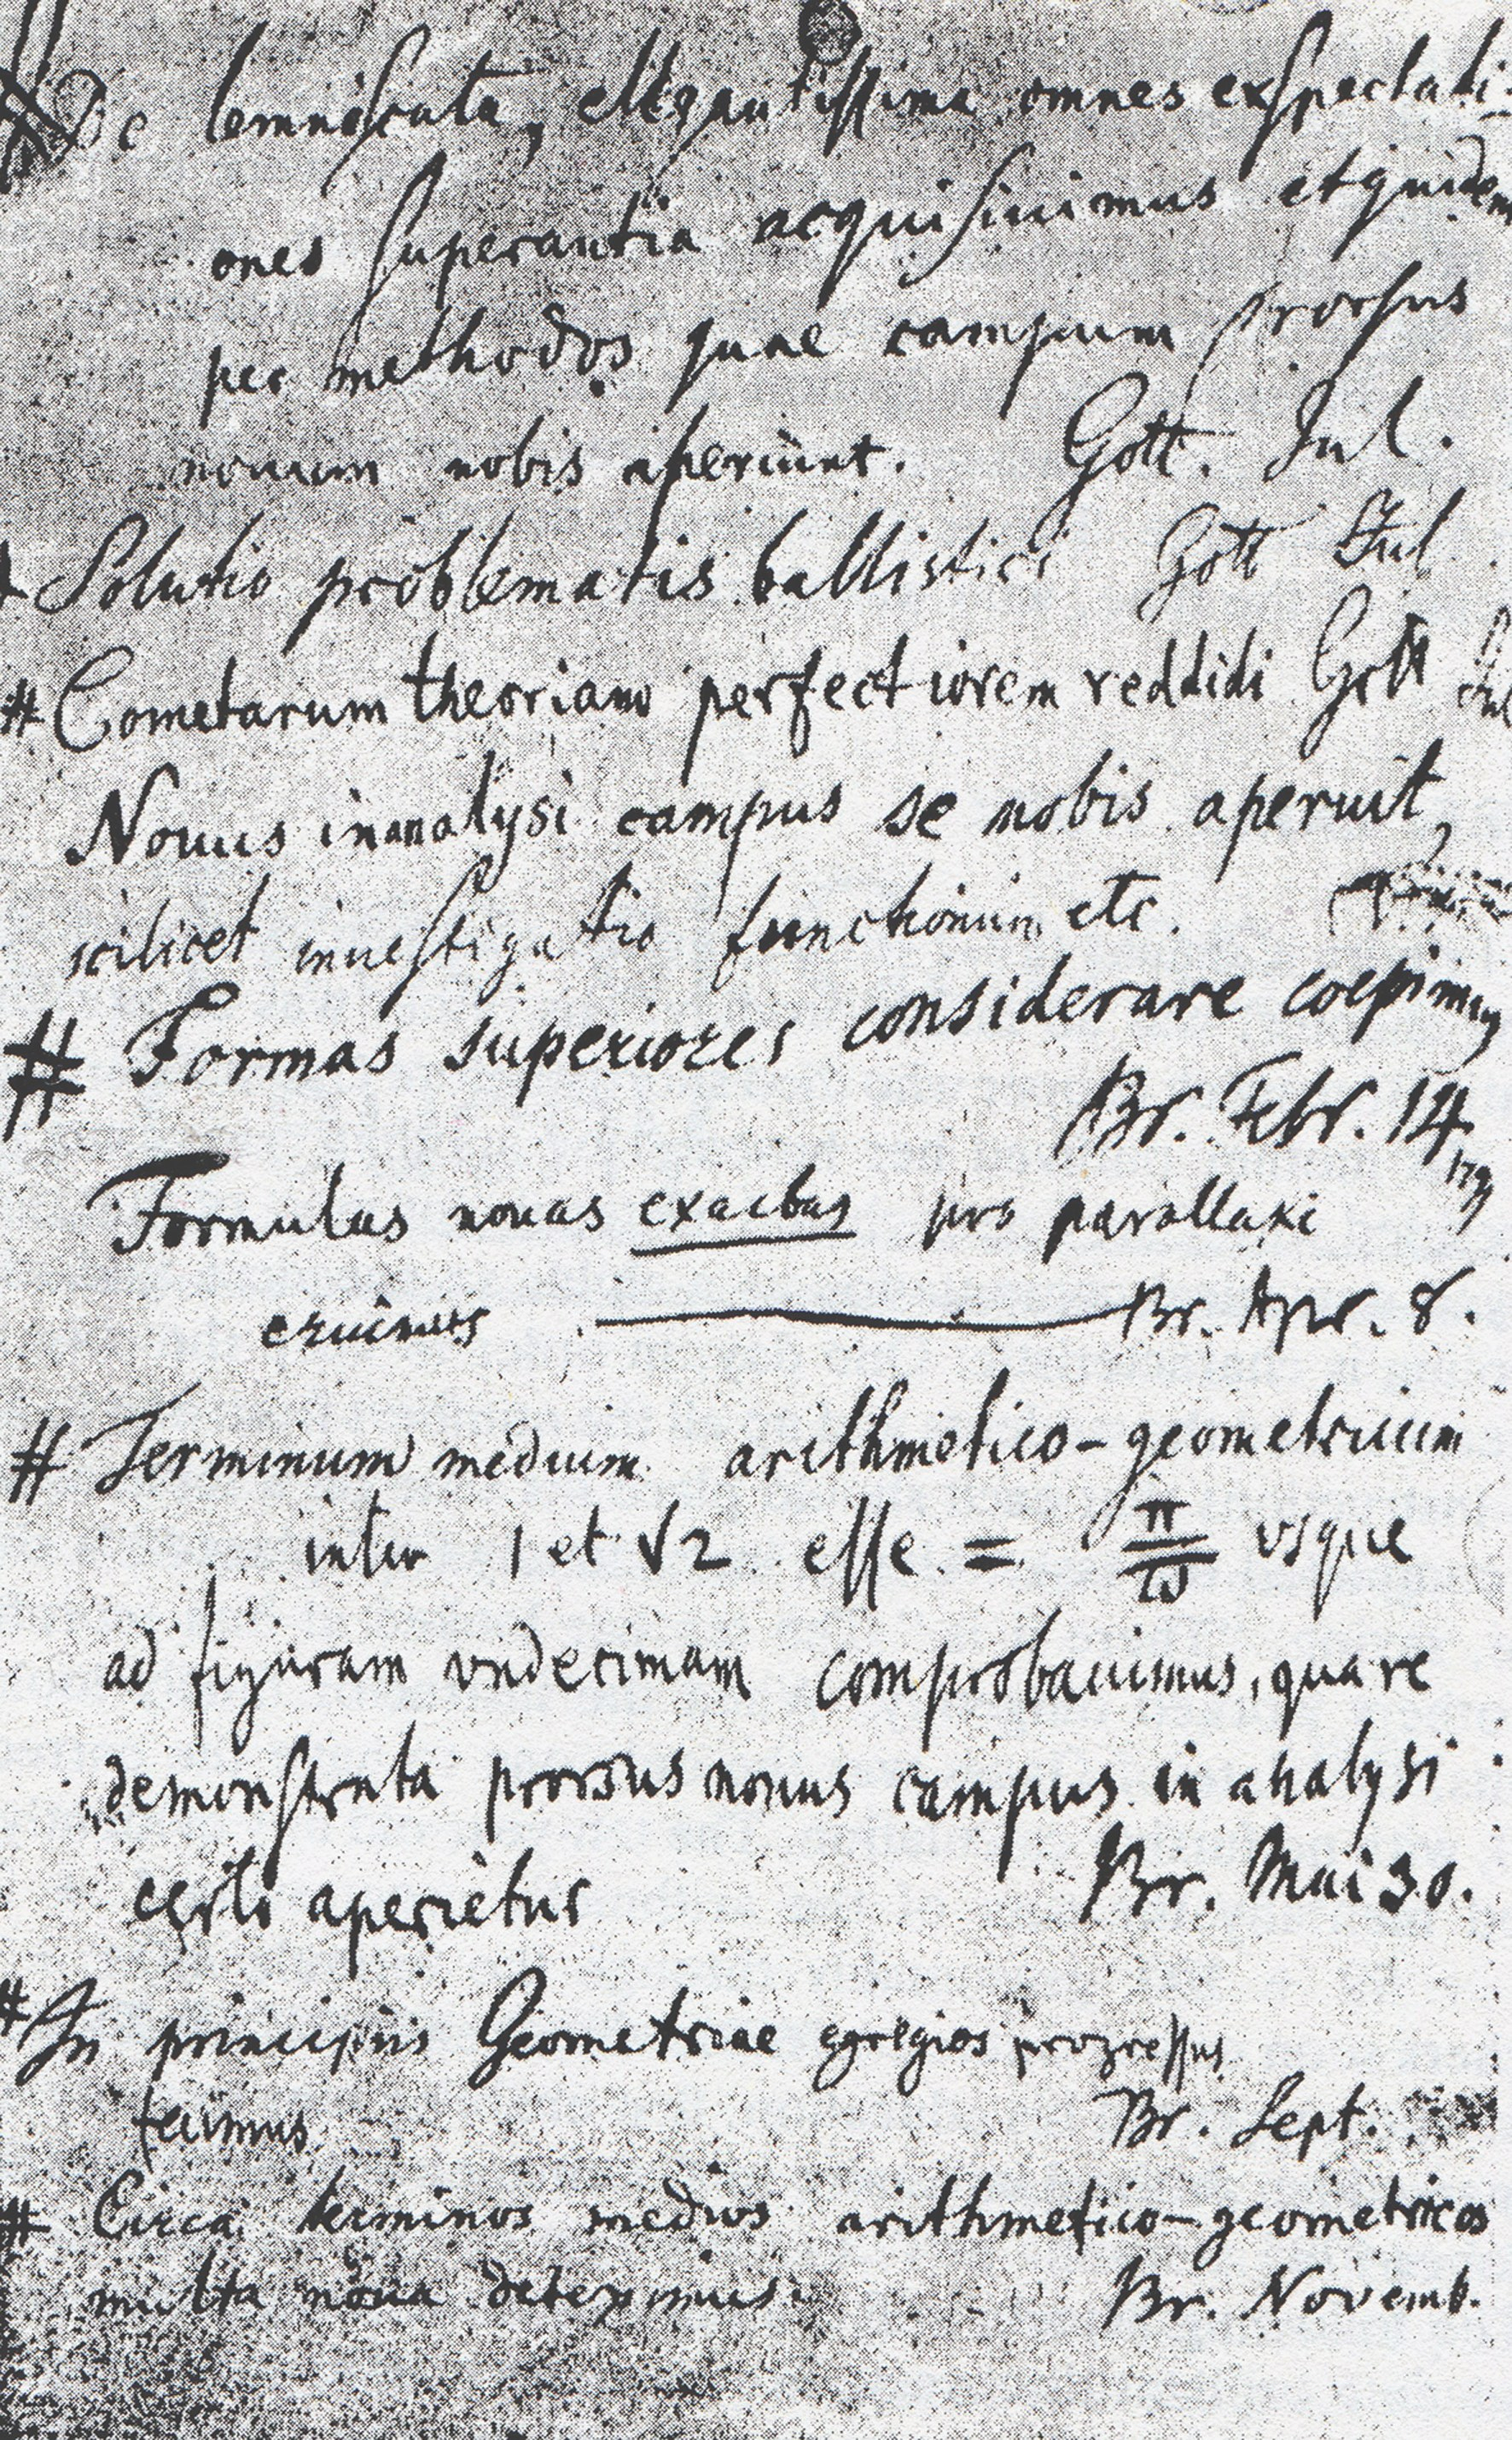 De lemniscata, elegantissima omnes exspectati-
ones superantia acquisiuimus et quidem
per methodos quae campum prorsus
nouum nobis aperiunt. Gott. Jul.
Solutio problematis ballistici Gott Jul.
# Cometarum theoriam perfectiorem reddidi Gott Jul
Nouus in analysi campus se nobis aperuit,
scilicet inuestigatio functionum etc.
# Formas superiores considerare coepimus
Br. Febr. 14
1799
Formulas nouas exactas pro parallaxi
eruimus Br. Apr. 8.
# Terminum medium arithmetico-geometricum
inter 1 et √2 esse = π/ϖ vsque
ad figuram vndecimam comprobauimus, qua re
demonstrata prorsus nouus campus in analysi
certo aperietur Br. Mai 30.
# In principiis Geometriae egregios progressus
fecimus Br. Sept.
# Circa terminos medios arithmetico-geometricos
multa noua deteximus. Br. Novemb.